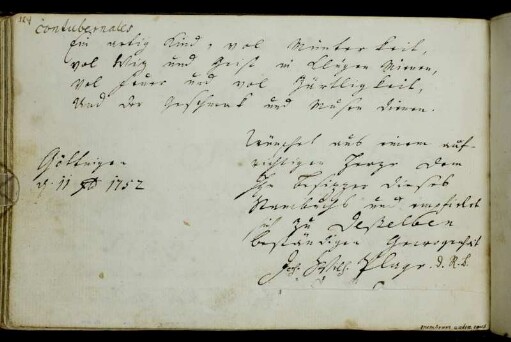 124
contubernales
Ein artig Kind, vol Munterkeit,
vol Witz und Geist in klugen Mienen,
vol Feuer und vol Zärtligkeit,
Und der Geschmack und Musen dienen.
Wünschet aus einem auf-
richtigen Herze dem
Besizzer dieses
Stambuchs und empfielet
sich zu Deßelben
beständigen Gewogenheit
Joh. Plagr. d. R. b.
Göttingen
d. 11 1752